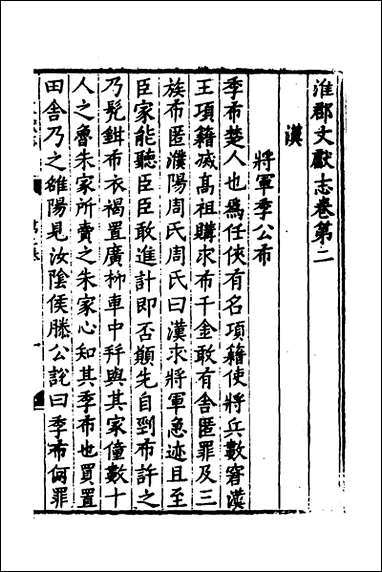 淮郡文獻志卷第二
漢
將軍季公布
季布楚人也爲任俠有名項籍使將兵數窘漢
王項籍滅高祖購求布千金敢有舍匿罪及三
族布匿濮陽周氏周氏曰漢求將軍急迹且至
臣家能聽臣臣敢進計即否願先自剄布許之
乃髡鉗布衣褐置廣柳車中并與其家僮數十
人之魯朱家所賣之朱家心知其季布也買置
田舍乃之雒陽見汝陰侯滕公說曰季布何罪